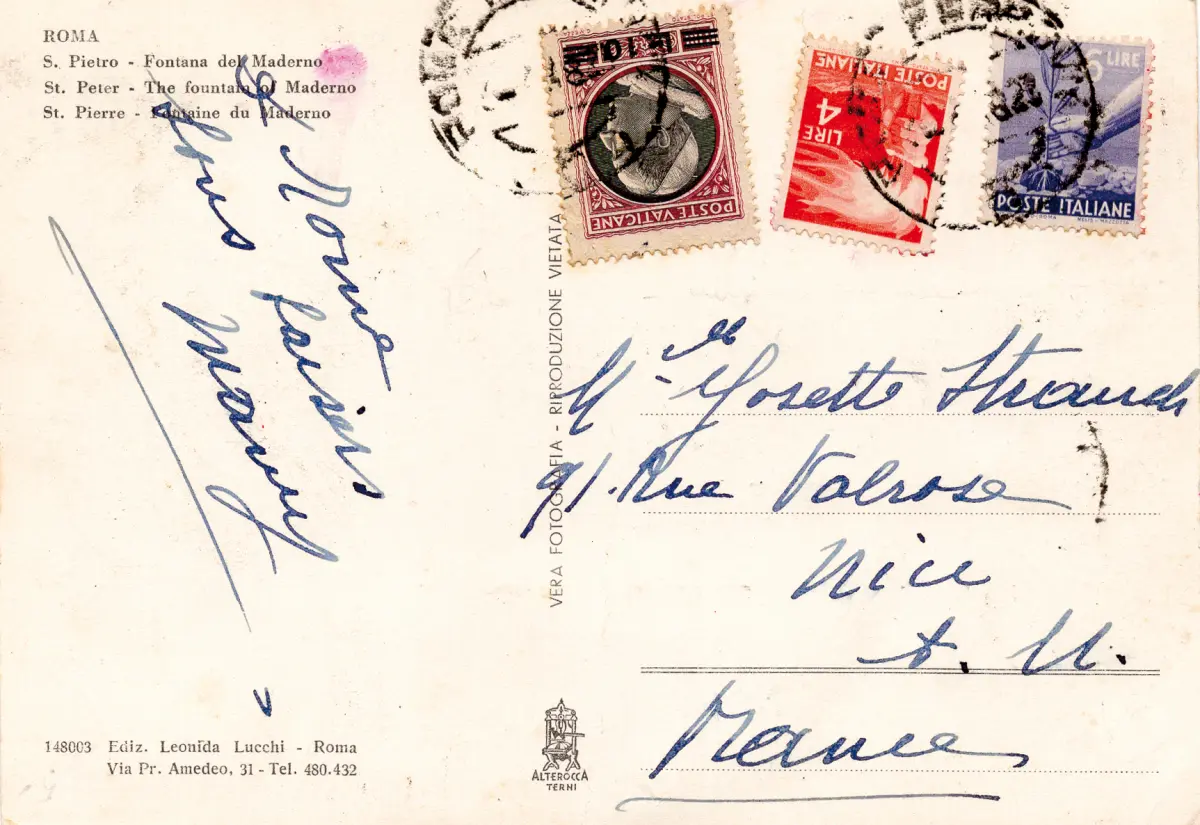 ROMA
S. Pietro - Fontana del Maderno
St. Peter - The fountain of Maderno
St. Pierre - Fontaine du Maderno
De Rome
baisers
tous
Mamy
148003 Ediz. Leonida Lucchi - Roma
Via Pr. Amedeo, 31 - Tel. 480.432
VERA FOTOGRAFIA - RIPRODUZIONE VIETATA
ALTEROCCA
TERNI
POSTE VATICANE
POSTE ITALIANE
LIRE 4
6 LIRE
POSTE ITALIANE
Melle Yosette Strauch
91. Rue Valrose
Nice
A. M.
France